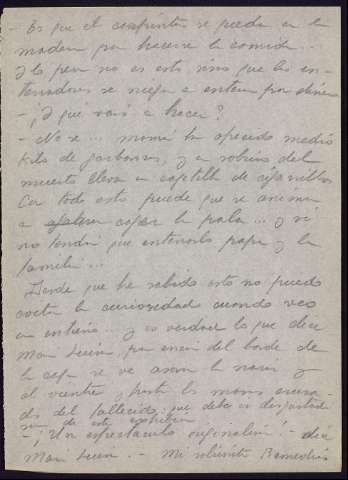 - Es que el carpintero se queda con la
madera para hacerse la comida...
Y lo peor no es esto, sino que los en-
terradores se niegan a enterrar por dinero
- ¿Y qué vais a hacer?
- No se... mamá ha ofrecido medio
kilo de garbanzos, y un sobrino del
muerto lleva un cajetilla de cigarrillos
Con todo esto puede que se animen
a coger la pala... y si
no tendrá que enterrarlo papá y la
familia...
Desde que he sabido esto no puedo
evitar la curiosidad cuando veo
un entierro... y es verdad lo que dice
Mari Lucía, por encima del borde de
la caja se ve asomar la nariz y
el vientre y hasta las manos cruza-
das del fallecido que debe ir disgustado
de esta exhibición
- ¡Un espectáculo originalísimo! - dice
Mari Lucía. - Mi sobrinito Remedios